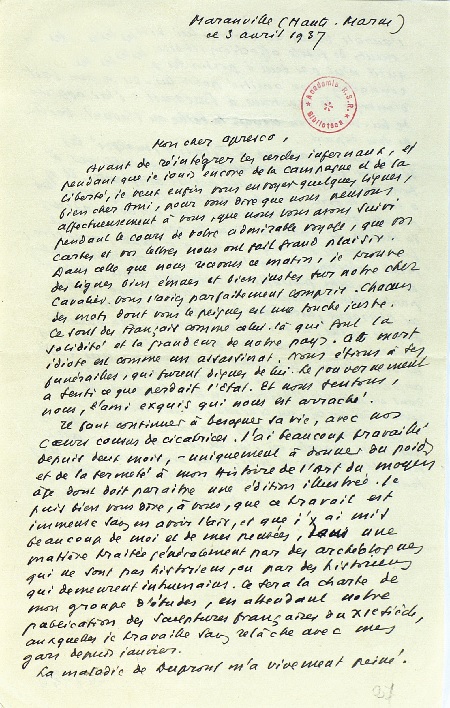 Maranville (Haute-Marne)
ce 3 avril 1937
Academia R.S.R.
Biblioteca
Mon cher Opresco,
Avant de réintégrer les cercles infernaux, et
pendant que je jouis encore de la campagne et de la
liberté, je veux enfin vous envoyer quelques lignes,
bien cher Ami, pour vous dire que nous pensons
affectueusement à vous, que nous vous avons suivi
pendant le cours de votre admirable voyage, que vos
cartes et vos lettres nous ont fait grand plaisir.
Dans celle que nous recevons ce matin, je trouve
des lignes bien émues et bien justes sur notre cher
Cavalier. Vous l'aviez parfaitement compris. Chacun
des mots dont vous le peignez est une touche juste.
Ce sont des Français comme celui-là qui font la
solidité et la grandeur de notre pays. Cette mort
idiote est comme un assassinat. Nous étions à ses
funérailles, qui furent dignes de lui. Le gouvernement
a senti ce que perdait l'État. Et nous sentons,
nous, l'ami exquis qui nous est arraché.
Il faut continuer à besogner sa vie, avec nos
cœurs cousus de cicatrices. J'ai beaucoup travaillé
depuis deux mois, - uniquement à donner du poids
et de la fermeté à mon Histoire de l'Art du moyen
âge dont doit paraître une édition illustrée. Je
puis bien vous dire, à vous, que ce travail est
immense sans en avoir l'air, et que j'y ai mis
beaucoup de moi et de mes pensées, dans une
matière traitée généralement par des archéologues
qui ne sont pas historiens, ou par des historiens
qui demeurent inhumains. Ce sera la charte de
mon groupe d'études, en attendant notre
publication des sculptures françaises du XIe siècle,
auxquelles je travaille sans relâche avec mes
gars depuis janvier.
La maladie de Dupront m'a vivement peiné.